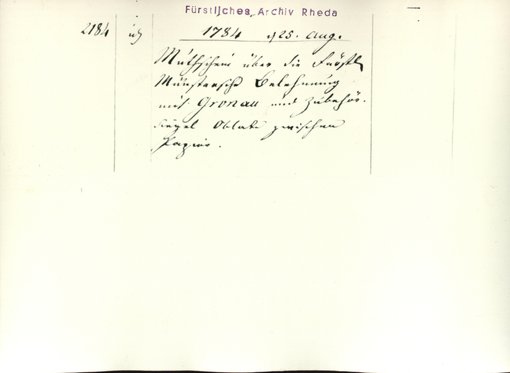 Fürstliches Archiv Rheda
2184
1784 d 25. Aug.
Muthschein über die Fürstl.
Münstersche Belehnung
mit Gronau und Zubehör.
Siegel Oblate zwischen
Papier.